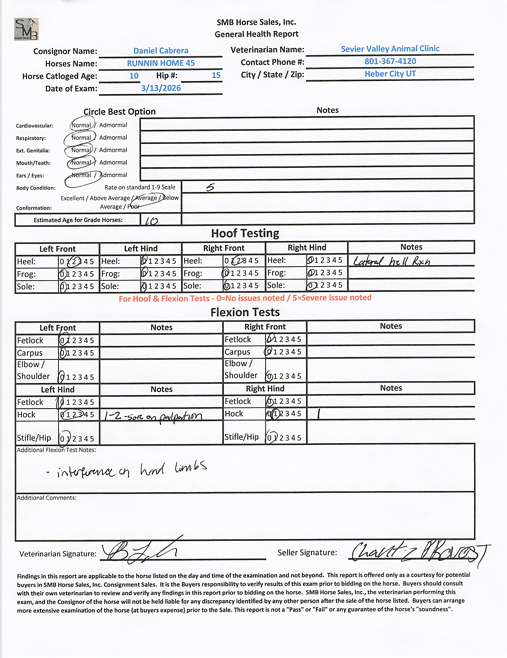 SMB
SMB Horse Sales, Inc.
General Health Report
Consignor Name: Daniel Cabrera Veterinarian Name: Sevier Valley Animal Clinic
Horses Name: RUNNIN HOME 45 Contact Phone #: 801-367-4120
Horse Catloged Age: 10 Hip #: 15 City / State / Zip: Heber City UT
Date of Exam: 3/13/2026
Circle Best Option Notes
Cardiovascular: Normal / Admormal
Respiratory: Normal / Admormal
Ext. Genitalia: Normal / Admormal
Mouth/Teath: Normal / Admormal
Ears / Eyes: Normal / Admormal
Body Condition: Rate on standard 1-9 Scale 5
Excellent / Above Average / Average / Below
Conformation: Average / Poor
Estimated Age for Grade Horses: 10
Hoof Testing
Left Front Left Hind Right Front Right Hind Notes
Heel: 0 1 2 3 4 5 Heel: 0 1 2 3 4 5 Heel: 0 1 2 3 4 5 Heel: 0 1 2 3 4 5 Lateral hell
Frog: 0 1 2 3 4 5 Frog: 0 1 2 3 4 5 Frog: 0 1 2 3 4 5 Frog: 0 1 2 3 4 5
Sole: 0 1 2 3 4 5 Sole: 0 1 2 3 4 5 Sole: 0 1 2 3 4 5 Sole: 0 1 2 3 4 5
For Hoof & Flexion Tests - 0=No issues noted / 5=Severe issue noted
Flexion Tests
Left Front Notes Right Front Notes
Fetlock 0 1 2 3 4 5 Fetlock 0 1 2 3 4 5
Carpus 0 1 2 3 4 5 Carpus 0 1 2 3 4 5
Elbow / Elbow /
Shoulder 0 1 2 3 4 5 Shoulder 0 1 2 3 4 5
Left Hind Notes Right Hind Notes
Fetlock 0 1 2 3 4 5 Fetlock 0 1 2 3 4 5
Hock 0 1 2 3 4 5 1-2 - sore on palpation Hock 0 1 2 3 4 5 1
Stifle/Hip 0 1 2 3 4 5 Stifle/Hip 0 1 2 3 4 5
Additional Flexion Test Notes:
- interference on hind limbs
Additional Comments:
Veterinarian Signature: Seller Signature:
Findings in this report are applicable to the horse listed on the day and time of the examination and not beyond. This report is offered only as a courtesy for potential
buyers in SMB Horse Sales, Inc. Consignment Sales. It is the Buyers responsibility to verify results of this exam prior to bidding on the horse. Buyers should consult
with their own veterinarian to review and verify any findings in this report prior to bidding on the horse. SMB Horse Sales, Inc., the veterinarian performing this
exam, and the Consignor of the horse will not be held liable for any discrepancy identified by any other person after the sale of the horse listed. Buyers can arrange
more extensive examination of the horse (at buyers expense) prior to the Sale. This report is not a "Pass" or "Fail" or any guarantee of the horse's "soundness".